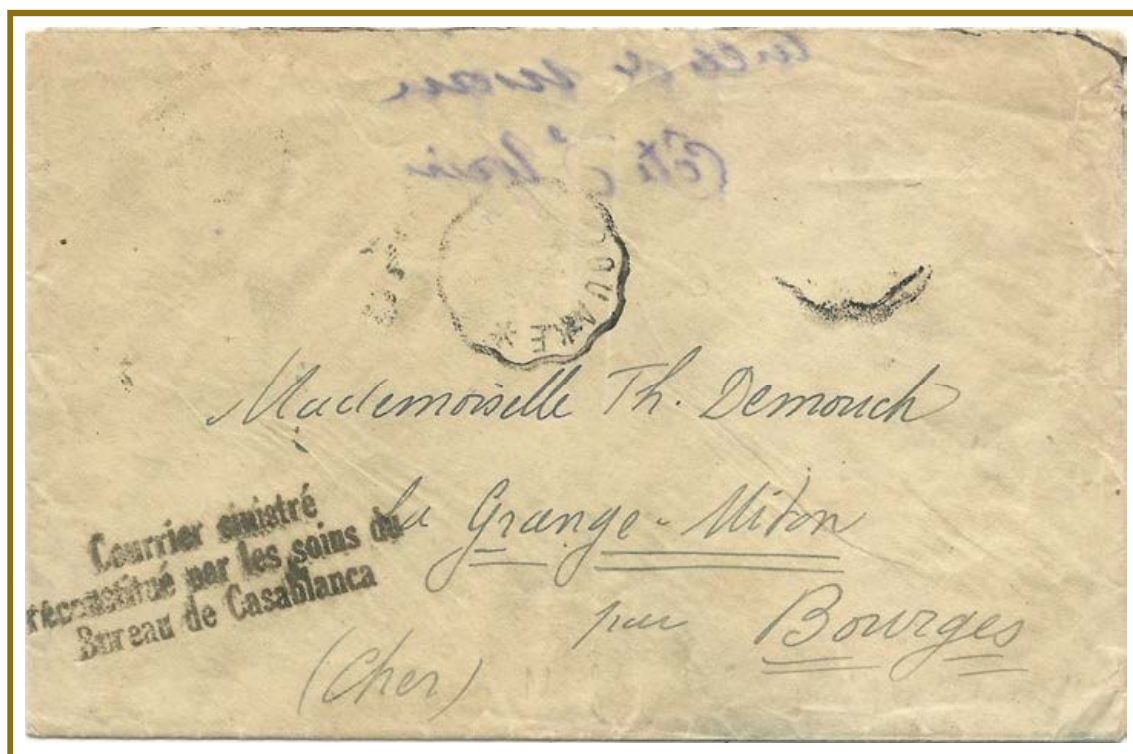 OUAKE *
Mademoiselle Th. Demouch
La Grange-Miton
par Bourges
(Cher)
Courrier sinistré
réconstitué par les soins du
Bureau de Casablanca